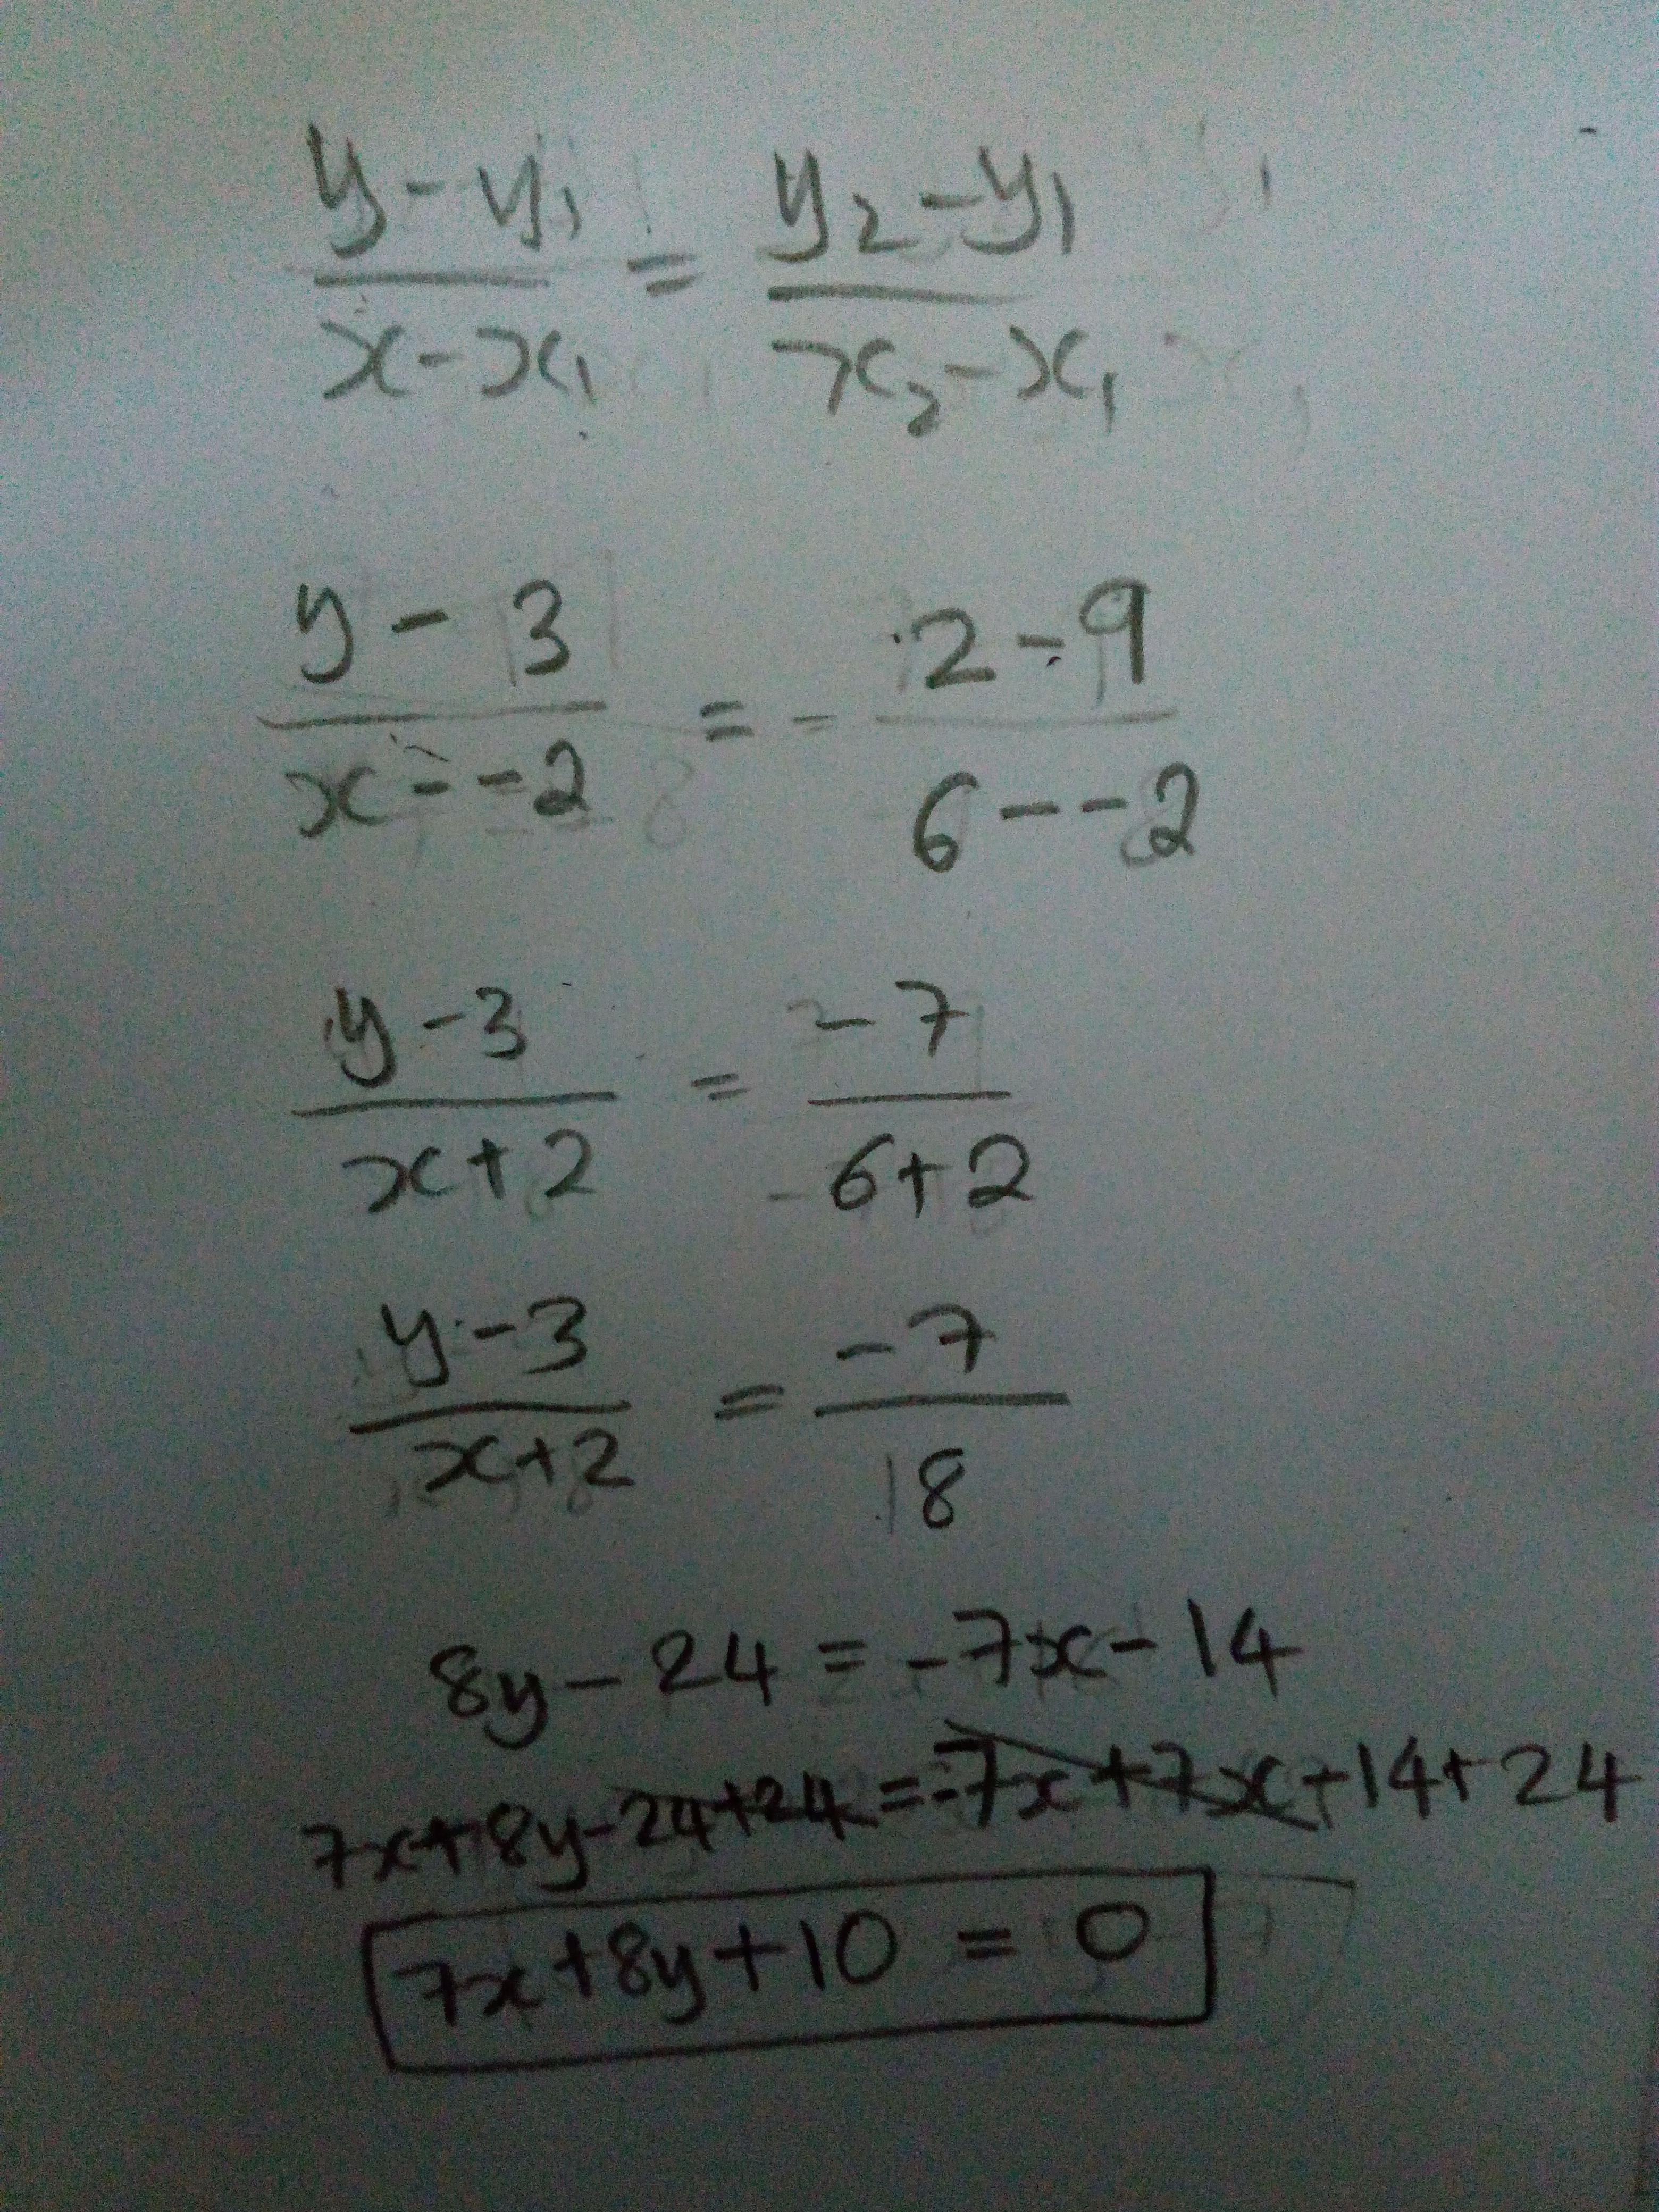 y - y₁ / x - x₁ = y₂ - y₁ / x₂ - x₁
y - 3 / x - -2 = - 2 - 9 / 6 - -2
y - 3 / x + 2 = -7 / 6 + 2
y - 3 / x + 2 = -7 / 18
8y - 24 = -7x - 14
7x + 8y - 24 + 24 = -7x + 7x - 14 + 24
7x + 8y + 10 = 0